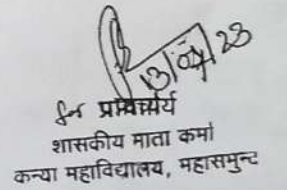 13/04/23
for प्राचार्य
शासकीय माता कर्मा
कन्या महाविद्यालय, महासमुन्द